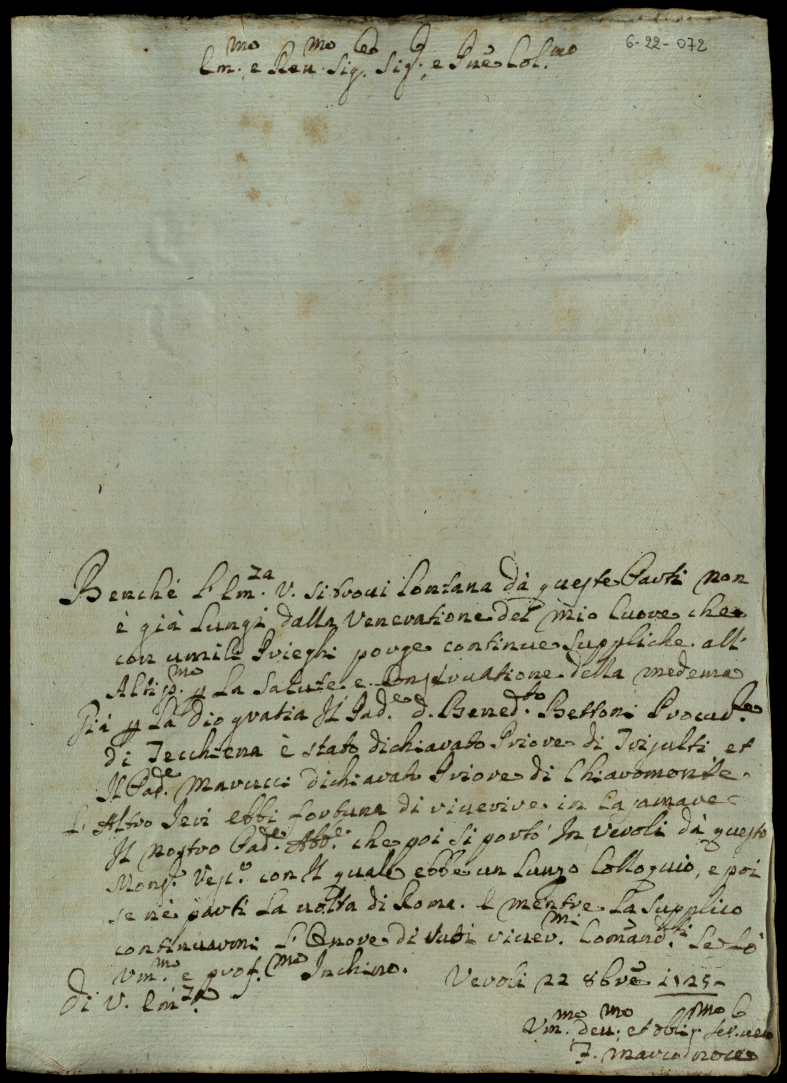 6-22-072
Em.mo e Reu.mo Sig. Sig. e Pnē Col.mo
Benché L'Em.za V. si troui lontana dà queste Parti non
è già lungi dalla Veneratione del mio Cuore che
con umili Prieghi porge continue suppliche all'
Altis.mo p La Salute e conseruatione della medema
Già p La Dio gratia Il Pad.e d. Bened.to Bettoni Procur.e
di Tecchiena è stato dichiarato Priore di Trisulti et
Il Pad.e Marucci dichiarato Priore di Chiaromonte.
L'Altro Ieri ebbi fortuna di riuerire in Casamare
Il nostro Pad.e Abb.e che poi si portò In Veroli dà questo
Mons.r Vesc.o con Il quale ebbe un Lungo Colloquio, e poi
se nè partì La uolta di Roma. E mentre La supplico
continuarmi L'Onore di suoi riuer.mi Comand.ti Le fò
Vm.mo e prof.mo Inchino. Veroli 22 8brē 1725
Di V. Em.za
Vm.mo deu.mo et obb.mo
F. Marco